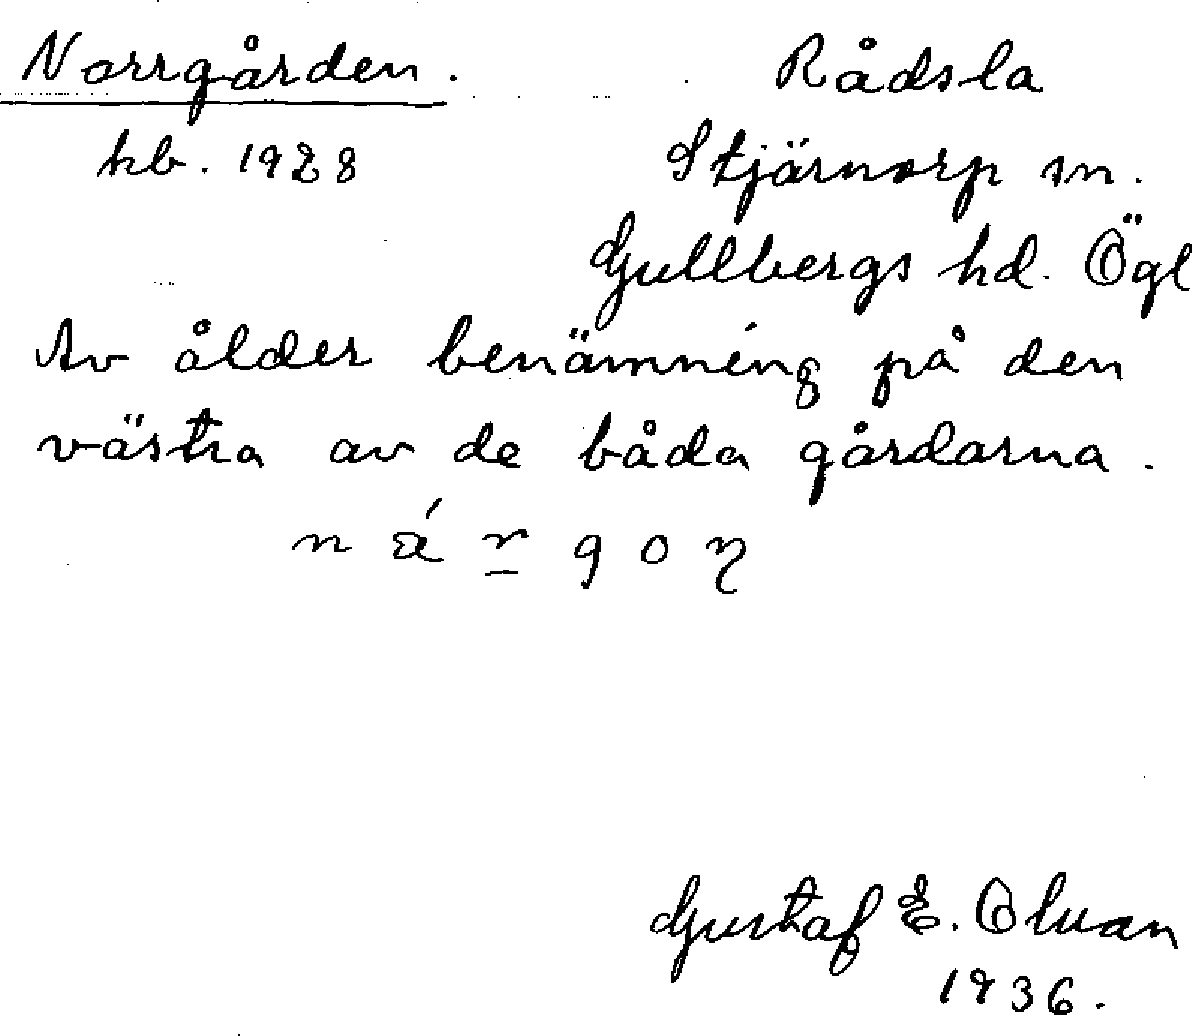 Norrgården. Rådsla
kb. 1928 Stjärnorp sn.
Gullbergs hd. Ögl
Av ålder benämning på den
västra av de båda gårdarna.
Gustaf E. Olvan
1936.